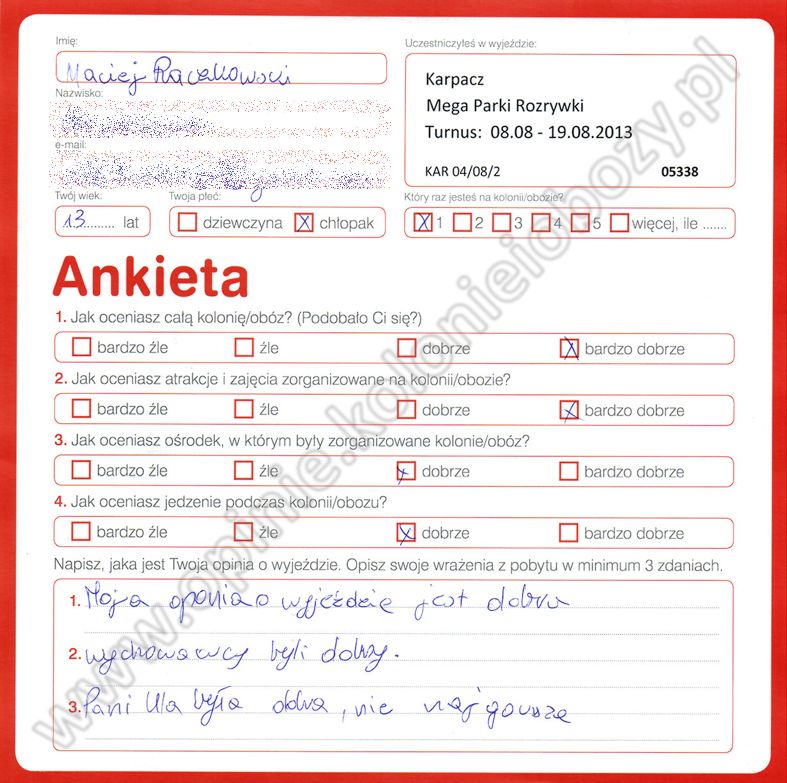 Imię:
Maciej Raczkowski
Nazwisko:
e-mail:
Twój wiek:
13 lat
Twoja płeć:
dziewczyna X chłopak
Uczestniczyłeś w wyjeździe:
Karpacz
Mega Parki Rozrywki
Turnus: 08.08 - 19.08.2013
KAR 04/08/2 05338
Który raz jesteś na kolonii/obozie?
X 1 2 3 4 5 więcej, ile .......
Ankieta
1. Jak oceniasz całą kolonię/obóz? (Podobało Ci się?)
bardzo źle źle dobrze X bardzo dobrze
2. Jak oceniasz atrakcje i zajęcia zorganizowane na kolonii/obozie?
bardzo źle źle dobrze X bardzo dobrze
3. Jak oceniasz ośrodek, w którym były zorganizowane kolonie/obóz?
bardzo źle źle X dobrze bardzo dobrze
4. Jak oceniasz jedzenie podczas kolonii/obozu?
bardzo źle źle X dobrze bardzo dobrze
Napisz, jaka jest Twoja opinia o wyjeździe. Opisz swoje wrażenia z pobytu w minimum 3 zdaniach.
1. Moja oponia o wyjeździe jest dobra
2. wychowawcy byli dobzy.
3. Pani Ula była dobra, nie najgorsza
www.opinie.kolonieiobozy.pl